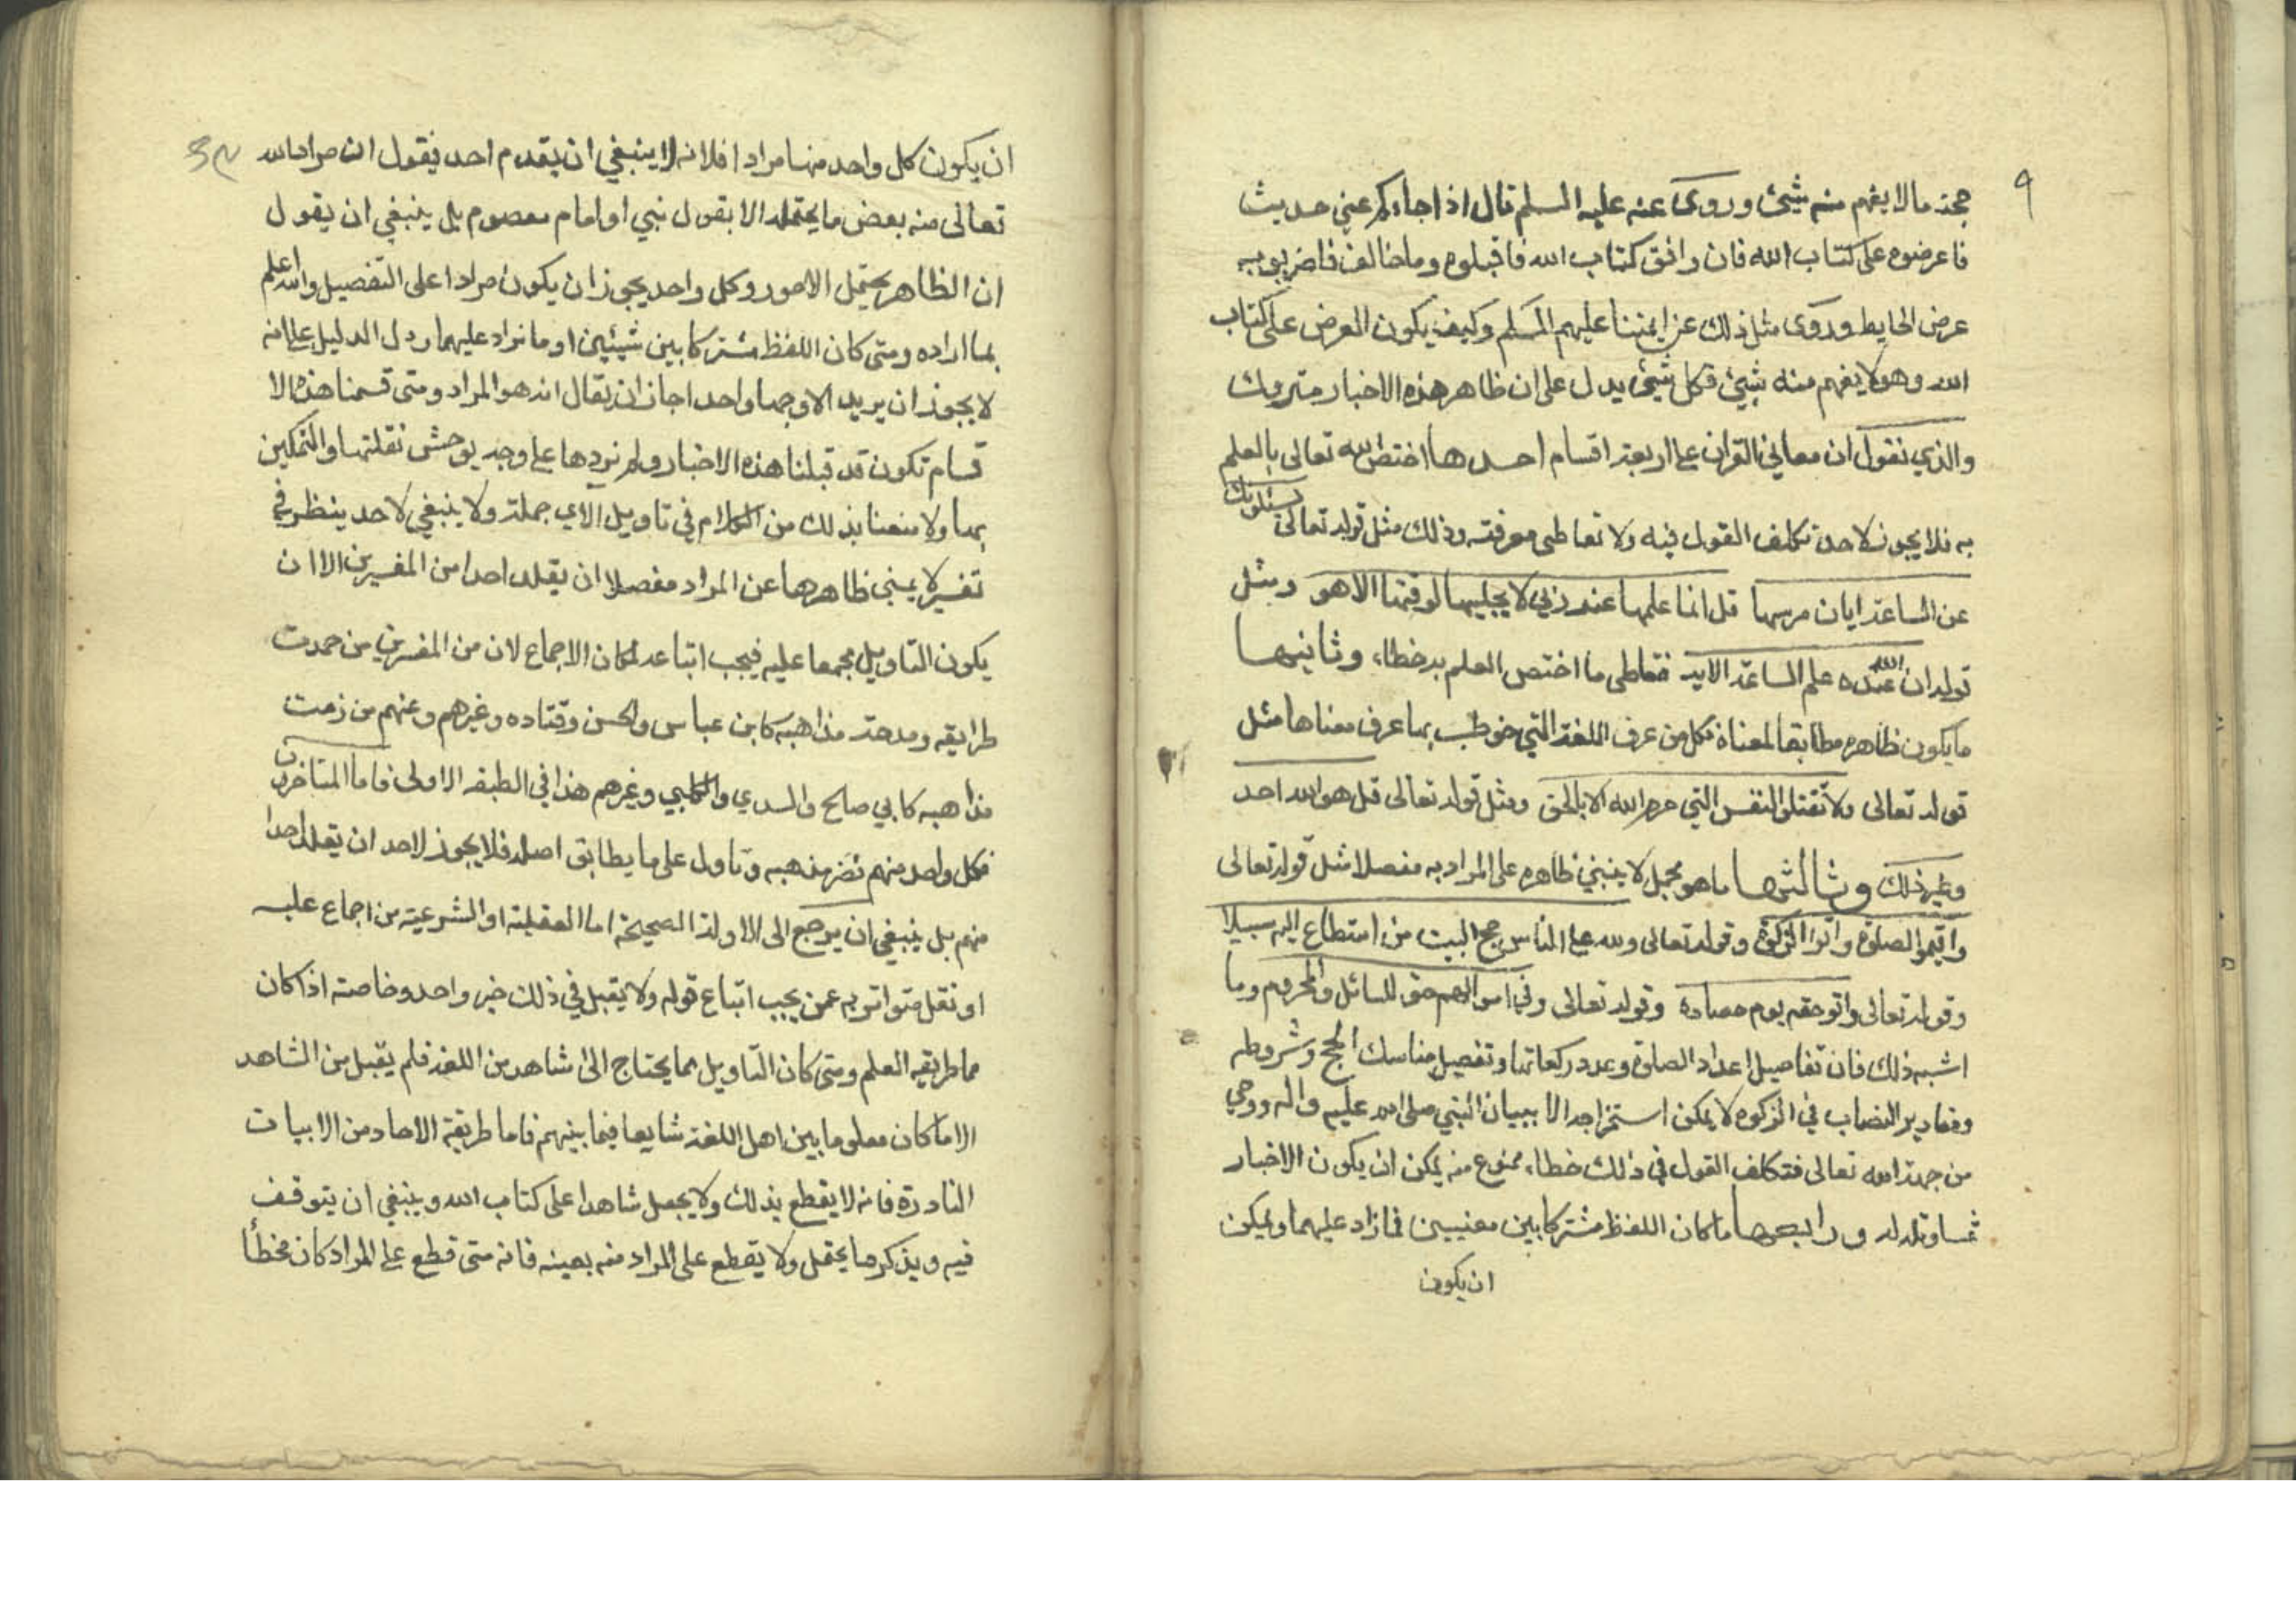 ٩
حجة ما لا يفهم منه شيئ وروى عنه عليه السلم قال اذا جاءكم عني حديث
فاعرضوه على كتاب الله فان وافق كتاب الله فاقبلوه وما خالفه فاضربوا به
عرض الحايط وروى مثل ذلك عن ايمتنا عليهم السلم وكيف يكون العرض على كتاب
الله وهو لا يفهم منه شيئ فكل شيئ يدل على ان ظاهر هذه الاخبار متروك
والذي نقول ان معاني القران على اربعة اقسام احدها اختص الله تعالى بالعلم
به فلا يجوز لاحد تكلف القول فيه ولا تعاطى معرفته وذلك مثل قوله تعالى يسئلونك
عن الساعة ايان مرسها قل انما علمها عند ربي لا يجليها لوقتها الا هو ومثل
قوله ان الله عنده علم الساعة الاية فتعاطى ما اختص العلم به خطاء وثانيها
ما يكون ظاهره مطابقا لمعناه فكل من عرف اللغة التي خوطب بها عرف معناها مثل
قوله تعالى ولا تقتلوا النفس التي حرم الله الا بالحق ومثل قوله تعالى قل هو الله احد
وغير ذلك وثالثها ما هو مجمل لا ينبئ ظاهره على المراد به مفصلا مثل قوله تعالى
واقيموا الصلوة واتوا الزكوة وقوله تعالى ولله على الناس حج البيت من استطاع اليه سبيلا
وقوله تعالى واتو حقه يوم حصاده وقوله تعالى وفي اموالهم حق للسائل والمحروم وما
اشبه ذلك فان تفاصيل اعداد الصلوة وعدد ركعاتها وتفصيل مناسك الحج وشروطه
ومقادير النصاب في الزكوة لا يمكن استخراجه الا ببيان النبي صلى الله عليه واله ووحي
من جهة الله تعالى فتكلف القول في ذلك خطاء ممنوع منه يمكن ان يكون الاخبار
متساوله له ورابعها ما كان اللفظ مشتركا بين معنيين فما زاد عليهما ويمكن
ان يكون
ان يكون كل واحد منها مرادا فلانه لا ينبغي ان يقدم احد يقول ان مراد الله
تعالى منه بعض ما يحتمله الا بقول نبي او امام معصوم بل ينبغي ان يقول
ان الظاهر يحتمل الامور وكل واحد يجوز ان يكون مرادا على التفصيل والله اعلم
بما اراده ومتى كان اللفظ مشتركا بين شيئين او ما زاد عليهما ودل الدليل على انه
لا يجوز ان يريد الا وجها واحدا جاز ان يقال انه هو المراد ومتى قسمنا هذه الا
قسام تكون قد قبلنا هذه الاخبار ولم نردها على وجه يوحش نقلتها والمتمسكين
بها ولا منعنا بذلك من الكلام في تاويل الاي جملة ولا ينبغي لاحد ينظر في
تفسير لا يبنى ظاهرها عن المراد مفصلا ان يقلد احدا من المفسرين الا ان
يكون التاويل مجمعا عليه فيجب اتباعه لمكان الاجماع لان من المفسرين من حمدت
طرايقه ومدحت مذاهبه كابن عباس والحسن وقتاده وغيرهم وعنهم من ذمت
مذاهبه كابي صالح والسدي والكلبي وغيرهم هذا في الطبقه الاولى فاما المتاخرين
فكل واحد منهم نصر مذهبه وتاول على ما يطابق اصله فلا يجوز لاحد ان يقلد احدا
منهم بل ينبغي ان يرجع الى الادلة الصحيحة اما العقلية او الشرعية من اجماع عليه
او نقل متواتر به عمن يجب اتباع قوله ولا يقبل في ذلك خبر واحد وخاصته اذا كان
مما طريقه العلم ومتى كان التاويل مما يحتاج الى شاهد من اللغة فلم يقبل من الشاهد
الا ما كان معلوما بين اهل اللغة شايعا فيما بينهم فاما طريقة الاحاد من الابيات
النادرة فانه لا يقطع بذلك ولا يجعل شاهدا على كتاب الله وينبغي ان يتوقف
فيه ويذكر ما يحتمل ولا يقطع على المراد منه بعينه فانه متى قطع على المراد كان مخطأ